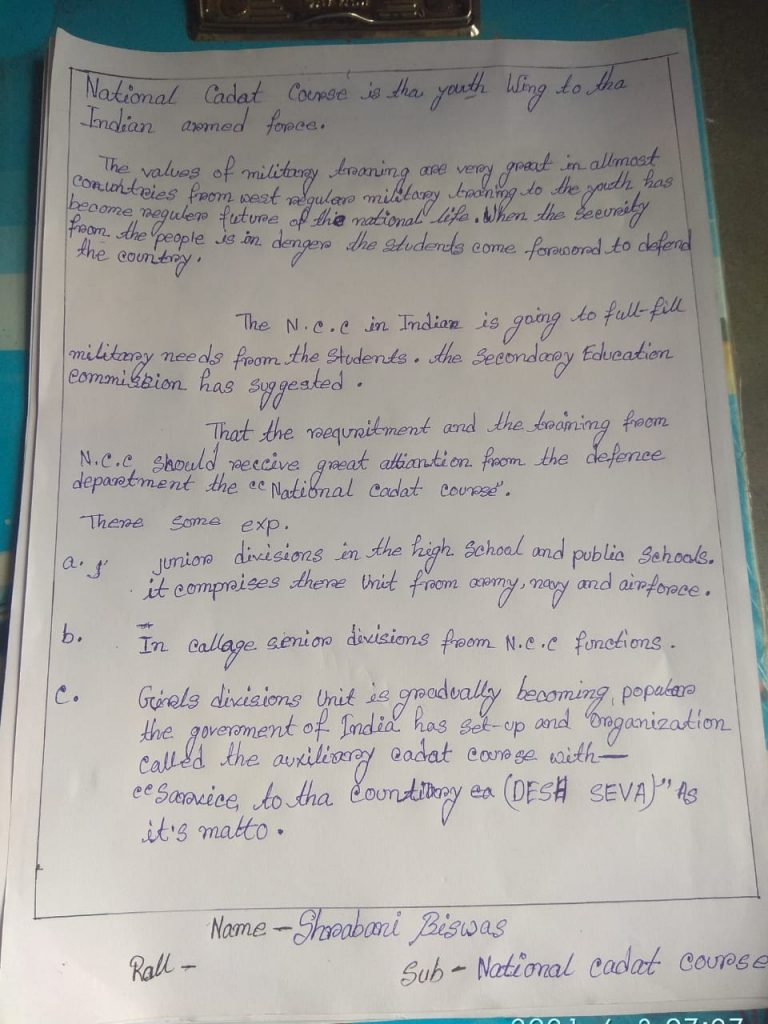 National Cadat Course is tha youth Wing to tha
Indian armed force.
The values of military traning are very great in allmost
conuntries from west reguler military traning to the youth has
become reguler future of the national life. When the security
from the people is in denger the students come forword to defend
the country.
The N.C.C in Indian is going to full-fill
military needs from the students. the Secondary Education
commission has suggested.
That the requritment and the training from
N.C.C should receive great attiantion from the defence
department the "National cadat course".
There some exp.
a. junior divisions in the high School and public schools.
it comprises there Unit from army, navy and airforce.
b. In callage senior divisions from N.C.C functions.
c. Girels divisions Unit is gradually becoming, populer
the goverment of India has set-up and Organization
called the auxiliary cadat course with—
"Sarvice, to tha Countiry ea (DESH SEVA)" As
it's matto.
Name - Shrabani Biswas
Roll -
Sub - National cadat course